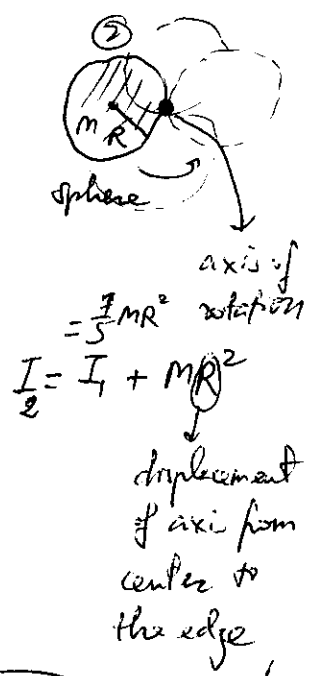 ②
M
R
sphere
axis of
rotation
= 7/5 MR²
I₂ = I₁ + MR²
displacement
of axis from
center to
the edge